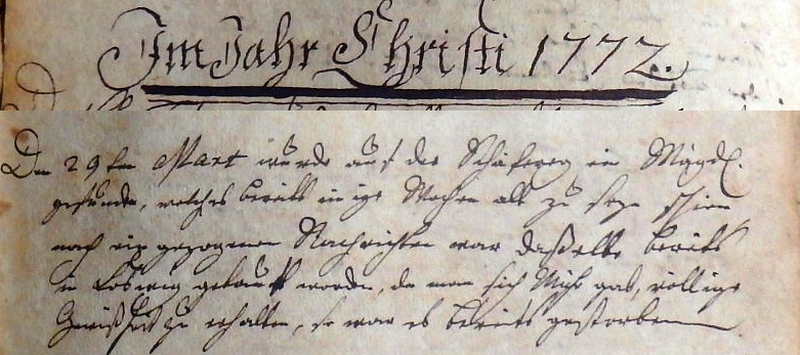 Im Jahr Christi 1772.
Den 29ten Mart wurde auf der Schäferey ein Mägdl.
gefunden, welches bereits einige Wochen alt zu seyn schien,
nach eingezogenen Nachrichten war daßelbe bereits
in getauft worden, da man sich Mühe gab, völlige
Gewißheit zu erhalten, so war es bereits gestorben